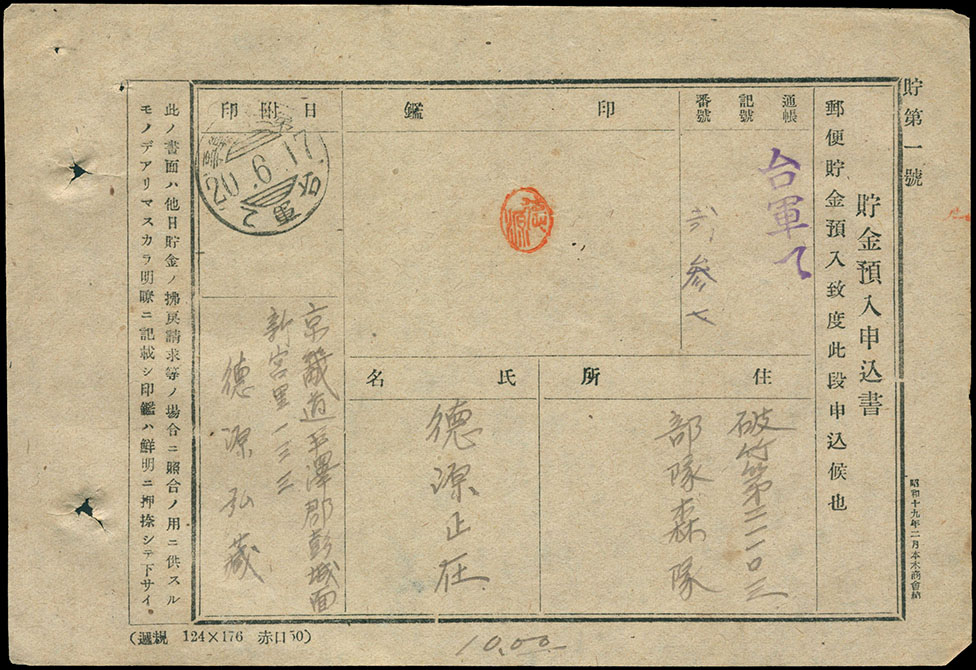 貯第一號
貯金預入申込書
郵便貯金預入致度此段申込候也
昭和十九年二月本木商會納
通帳
記號
番號
台軍て
弐参七
印鑑
德源
日附印
20.6.17
台軍
住所
破竹第二二一〇三
部隊森隊
氏名
德源正在
京畿道平澤郡彭城面
新宮里一三三
德源弘藏
此ノ書面ハ他日貯金ノ拂戻請求等ノ場合ニ照合ノ用ニ供スル
モノデアリマスカラ明瞭ニ記載シ印鑑ハ鮮明ニ押捺シテ下サイ。
(遞規 124×176 赤口50)
10.00